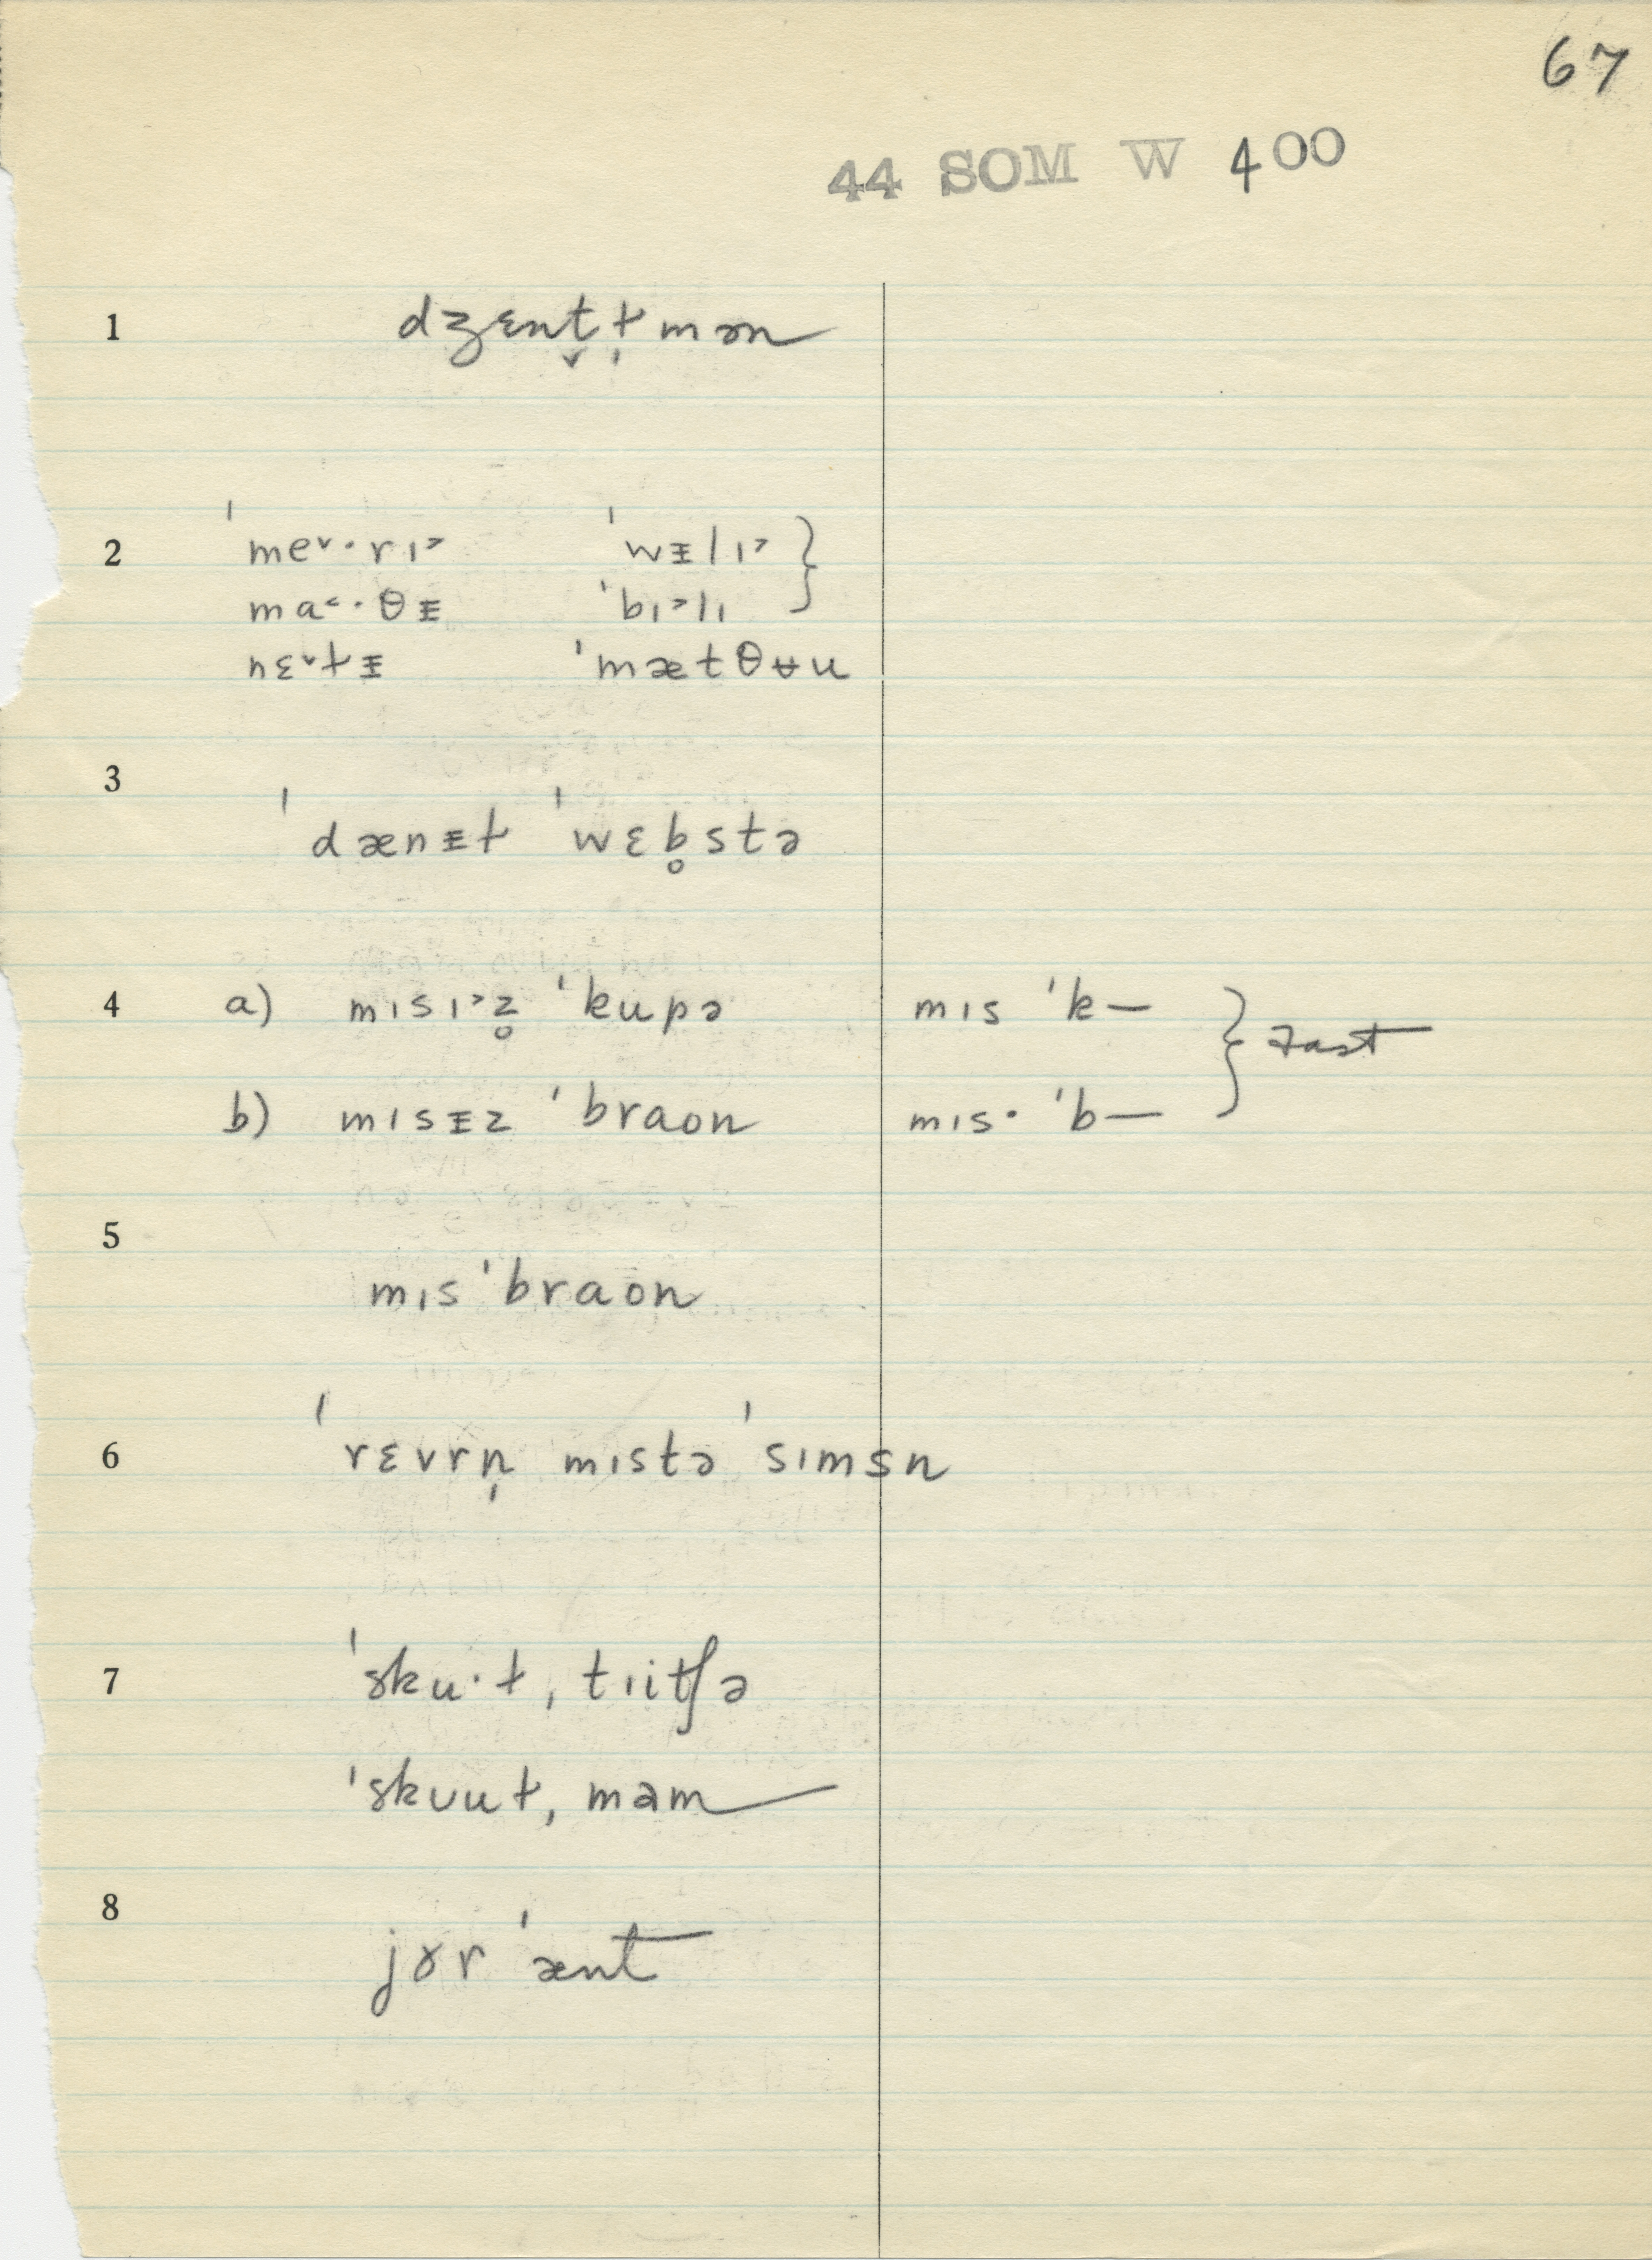 67
44 SOM W 400
1 dʒɛnt̬ɫ̩mən
2 ˈme˅·rɪ˃ ˈwᵻlɪ˃ }
ma˂·θᵻ ˈbɪ˃lɪ
nɛ˅ɫᵻ ˈmætθʉu
3 ˈdænᵻɫ ˈwɛb̥stə
4 a) mɪsɪ˃z̥ ˈkupə mɪs ˈk— } fast
b) mɪsᵻz ˈbraon mɪs· ˈb—
5 mɪs ˈbraon
6 ˈrɛvrn̩ mɪstə ˈsɪmsn
7 ˈsku·ɫ, tɪitʃə
ˈskʊuɫ, məm
8 jɤr ˈænt